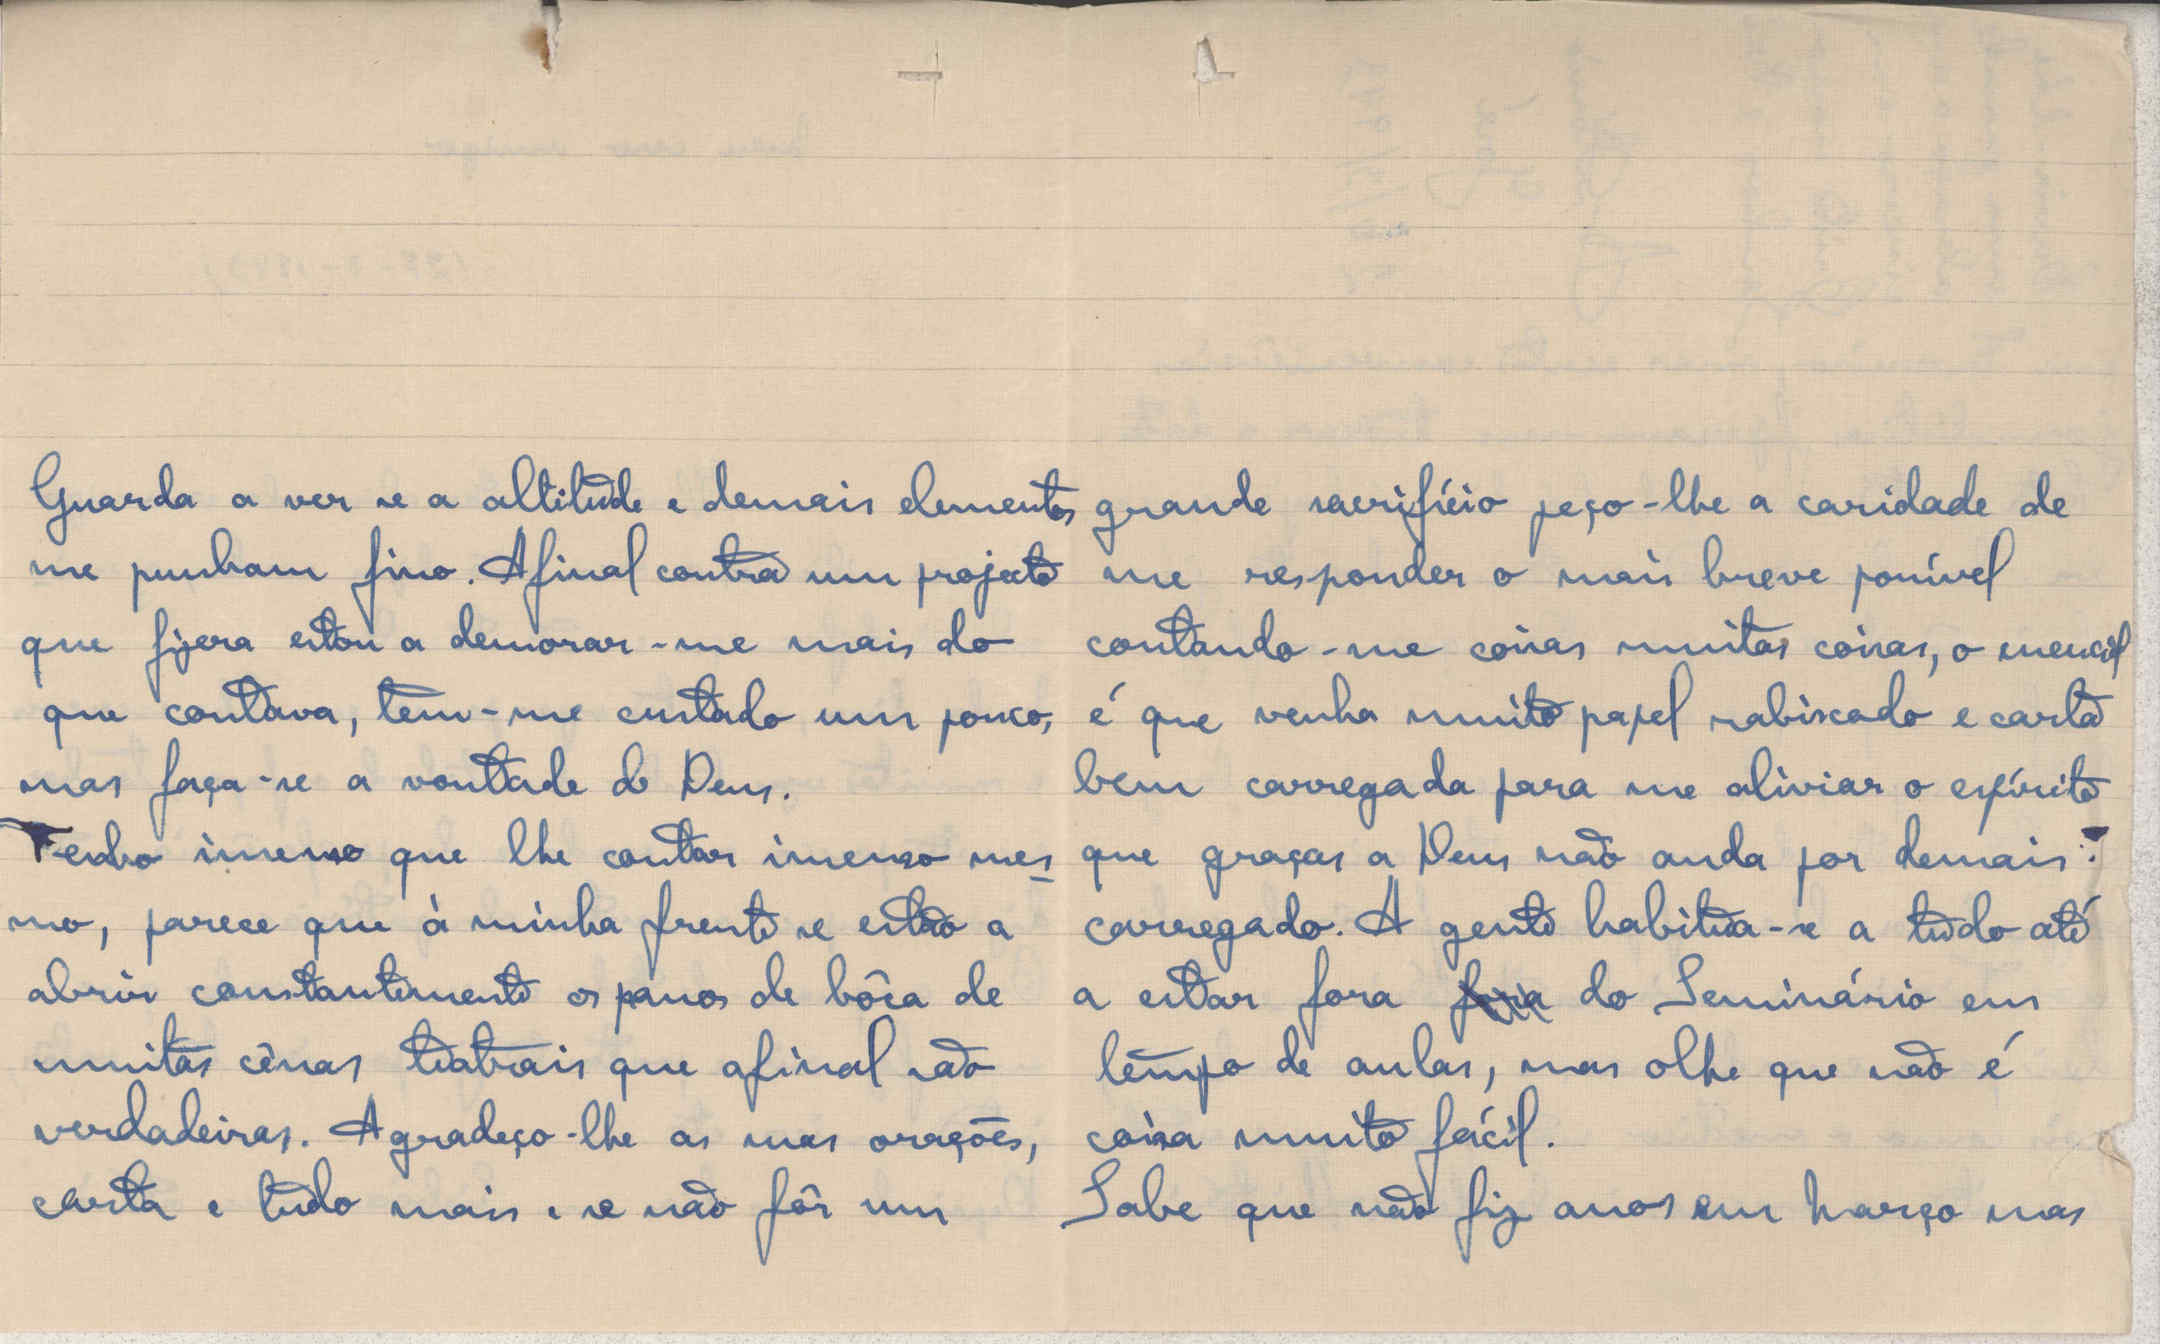 Guarda a ver se a altitude e demais elementos
me punham fino. Afinal contra um projecto
que fizera estou a demorar-me mais do
que contava, tem-me custado um pouco,
mas faça-se a vontade de Deus.
Tenho imenso que lhe contar imenso mes
mo, parece que à minha frente se estão a
abrir constantemente os panos de bôca de
muitas cênas teatrais que afinal são
verdadeiras. Agradeço-lhe as suas orações,
carta e tudo mais e se não fôr um
grande sacrifício peço-lhe a caridade de
me responder o mais breve possível
contando-me coisas muitas coisas, o essencial
é que venha muito papel rabiscado e carta
bem carregada para me aliviar o espírito
que graças a Deus não anda por demais
carregado. A gente habitua-se a tudo até
a estar fora do Seminário em
tempo de aulas, mas olhe que não é
coisa muito fácil.
Sabe que não fiz anos em março mas